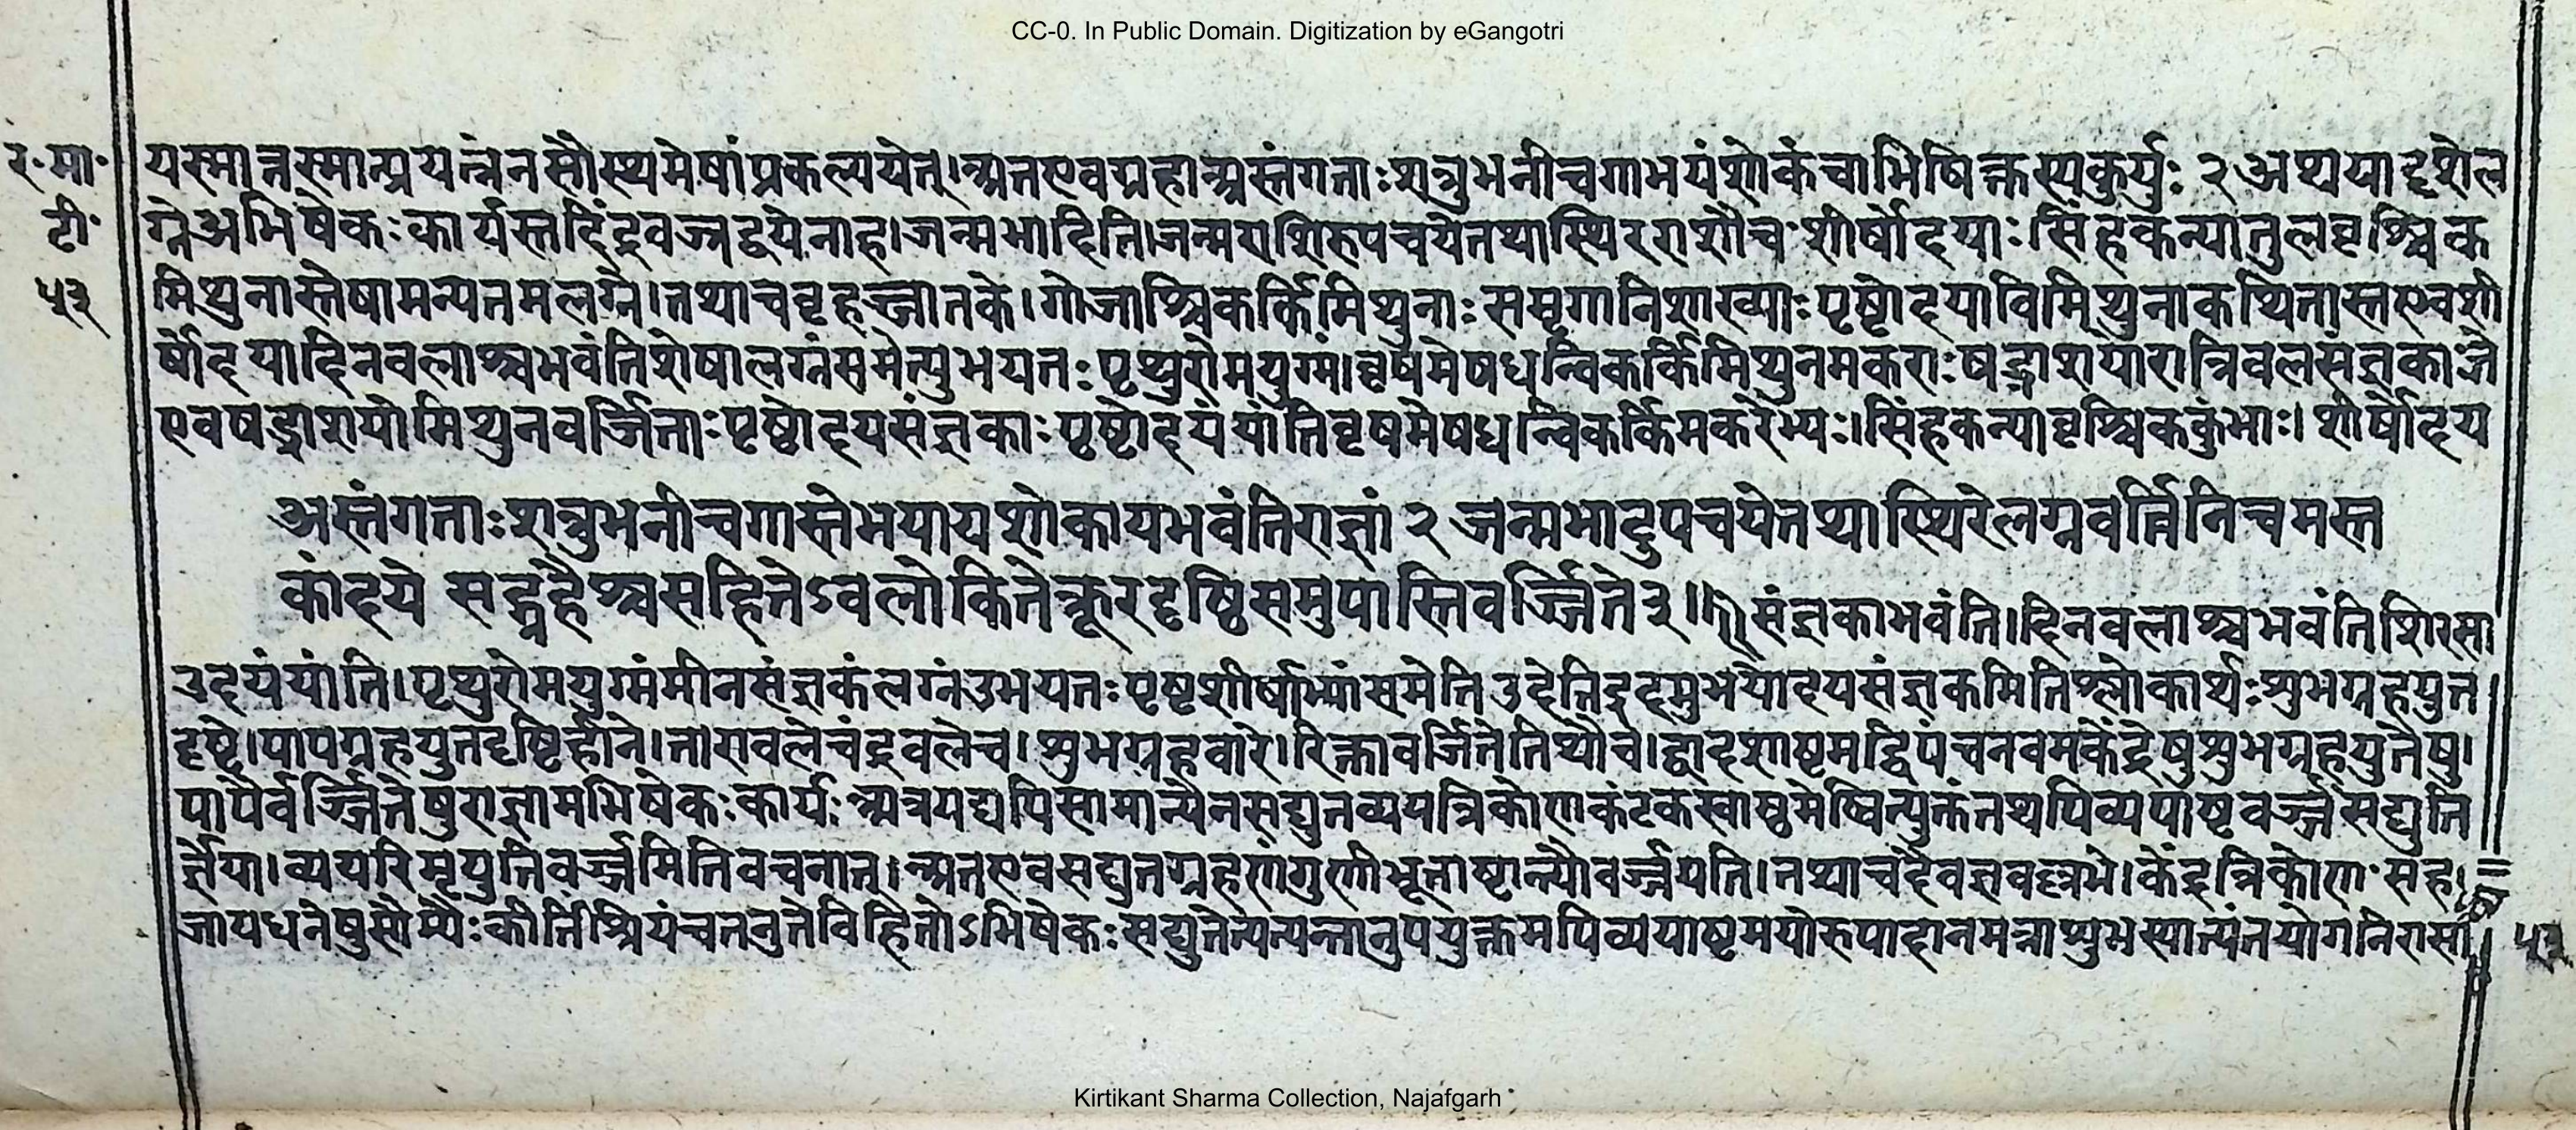 CC-0. In Public Domain. Digitization by eGangotri
र॰मा॰ यस्मात्तस्मात्प्रयत्नेनसौस्थ्यमेषांप्रकल्पयेत्।अतएवग्रहाअस्तंगताःशत्रुभनीचगाभयंशोकंचाभिषिक्तस्यकुर्युः २ अथयादृशेल
टी॰ ग्नेअभिषेकःकार्यस्तदिंद्रवज्रद्वयेनाह।जन्मभादिति।जन्मराशिरुपचयेतथास्थिरराशौच शीर्षोदयाःसिंहकन्यातुलवृश्चिक
५३ मिथुनास्तेषामन्यतमलग्ने।तथाचबृहज्जातके।गोजाश्विकर्किमिथुनाःसमृगानिशाख्याःपृष्टोदयाविमिथुनाकथितास्तएवशी
र्षोदयादिनबलाश्चभवंतिशेषालग्नंसमेत्युभयतःपृथुरोमयुग्मं।वृषमेषधन्विकर्किमिथुनमकराःषड्राशयोरात्रिबलसंज्ञका
एवषड्राशयोमिथुनवर्जिताःपृष्ठोदयसंज्ञकाःपृष्टोदयंयांतिवृषमेषधन्विकर्किमकरेभ्यः।सिंहकन्यावृश्चिककुंभाः।शीर्षोदय
अस्तंगताःशत्रुभनीचगास्तेभयायशोकायभवंतिराज्ञां २ जन्मभादुपचयेतथास्थिरेलग्नवर्त्तिनिचमस्त
कोदये सद्ग्रहैश्चसहितेऽवलोकितेक्रूरदृष्ठिसमुपास्तिवर्ज्जिते३॥
संज्ञकाभवंति।दिनबलाश्चभवंतिशिरसा
उदयंयांति।पृथुरोमयुग्मंमीनसंज्ञकंलग्नंउभयतःपृष्टशीर्षाभ्यांसमेतिउदेतिइदमुभयोदयसंज्ञकमितिश्लोकार्थःशुभग्रहयुत
दृष्टे।पापग्रहयुतदृष्टिहीने।ताराबलेचंद्रबलेच।शुभग्रहवारे।रिक्तावर्जितेतिथौच।द्वादशाष्टमद्वित्रिपंचनवमकेंद्रेषुशुभग्रहयुतेषु।
पापैर्वर्ज्जितेषुराज्ञामभिषेकःकार्यः अत्रयद्यपिसामान्येनसद्युतव्ययत्रिकोणकंटकस्वाष्ठमेष्वित्युक्तंतथापिव्ययाष्टवर्ज्जंसद्युति
र्ज्ञेया।व्ययरिमृयुतिवर्ज्जमितिवचनात्।अतएवसद्युतग्रहणंगुणीभूताष्टान्त्यौवर्ज्जयति।तथाचदैवज्ञवल्लभे।केंद्रत्रिकोण सह
जायधनेषुसौम्यैःकीर्तिंश्रियंचतनुतेविहितोऽभिषेकःसद्युतेत्यत्यन्तानुपयुक्तमपिव्ययाष्टमयोरुपादानमत्राशुभस्यात्यंतयोगनिरासा
५३
Kirtikant Sharma Collection, Najafgarh